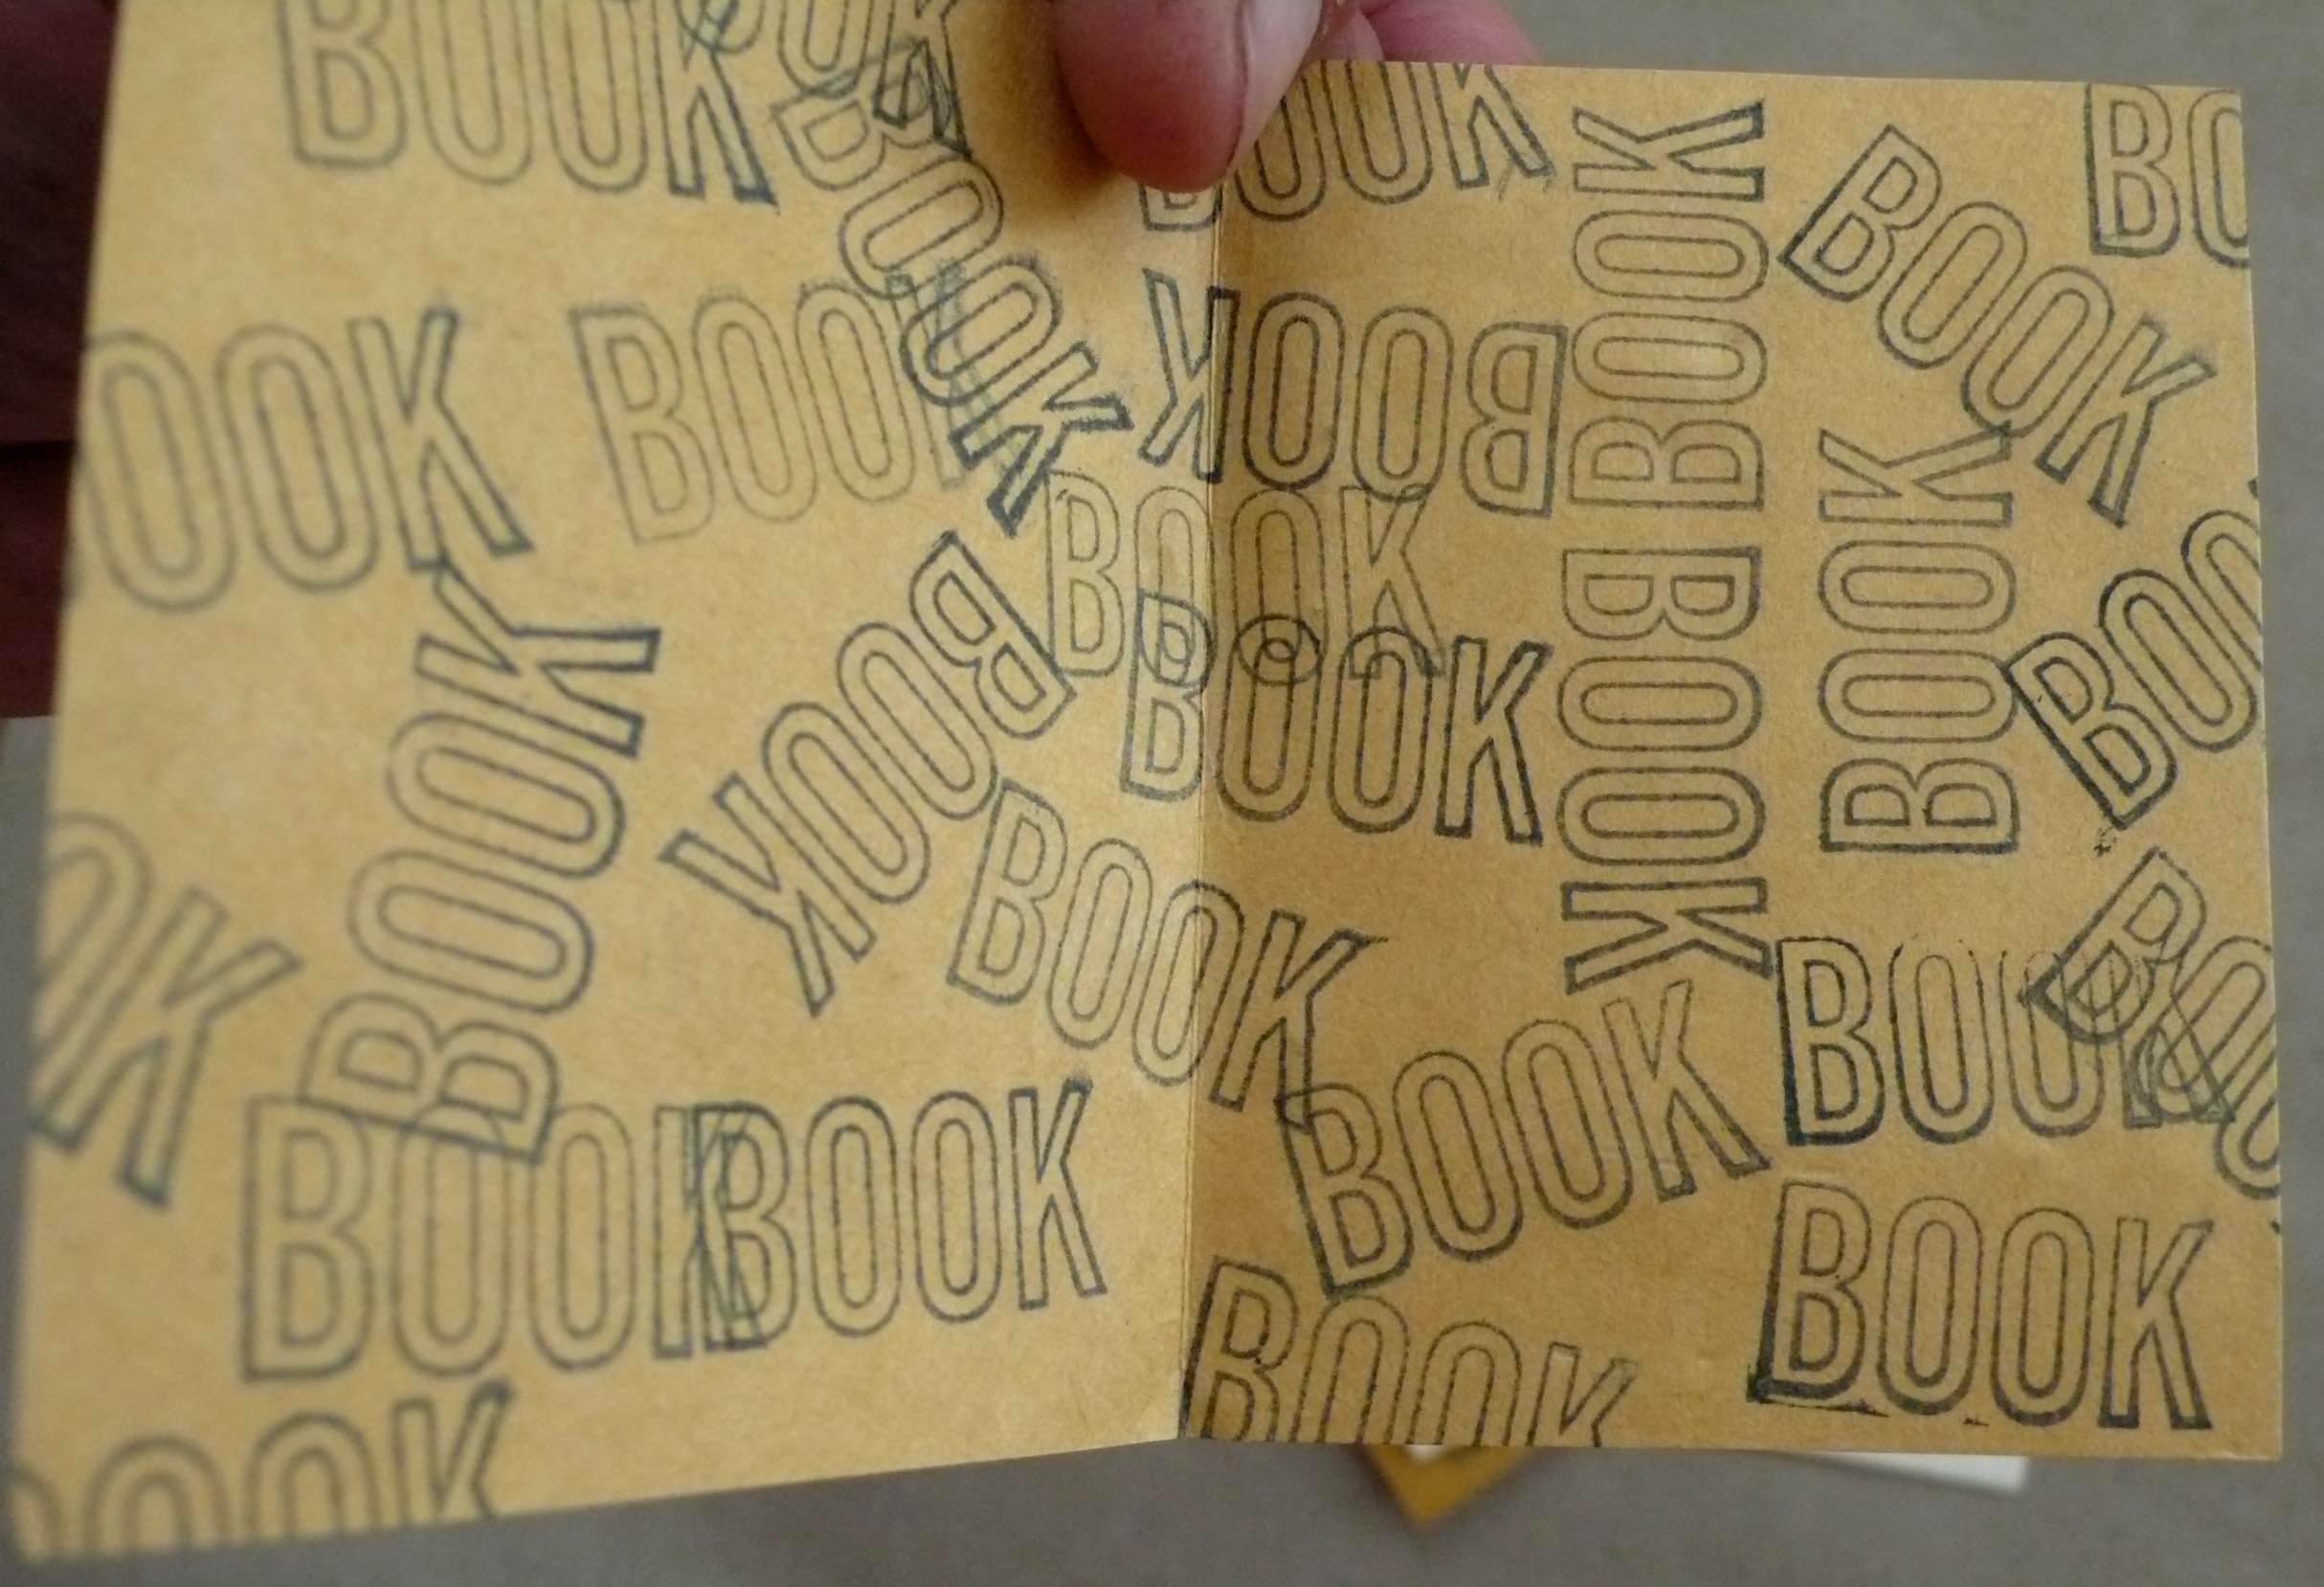 BOOK
OOK
BOOK
OOK
BOOK
BOOK
BOOK
OK
BOOK
BOOK
OOK
BOOK
BOOK
BOOK
BOOK
BOOK
BOOK
BOOK
BO
BOOK
BOOK
BOO
BOOK
BOO
BOOK
BOOK
BOOK